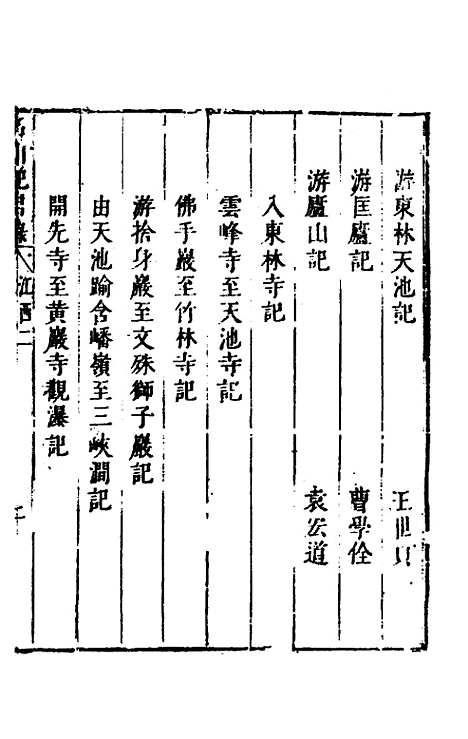 游東林天池記 王世貞
游匡廬記 曹學佺
游廬山記 袁宏道
入東林寺記
雲峰寺至天池寺記
佛手巖至竹林寺記
游捨身巖至文殊獅子巖記
由天池踰含嶓嶺至三峽澗記
開先寺至黃巖寺觀瀑記
名山記 江西二